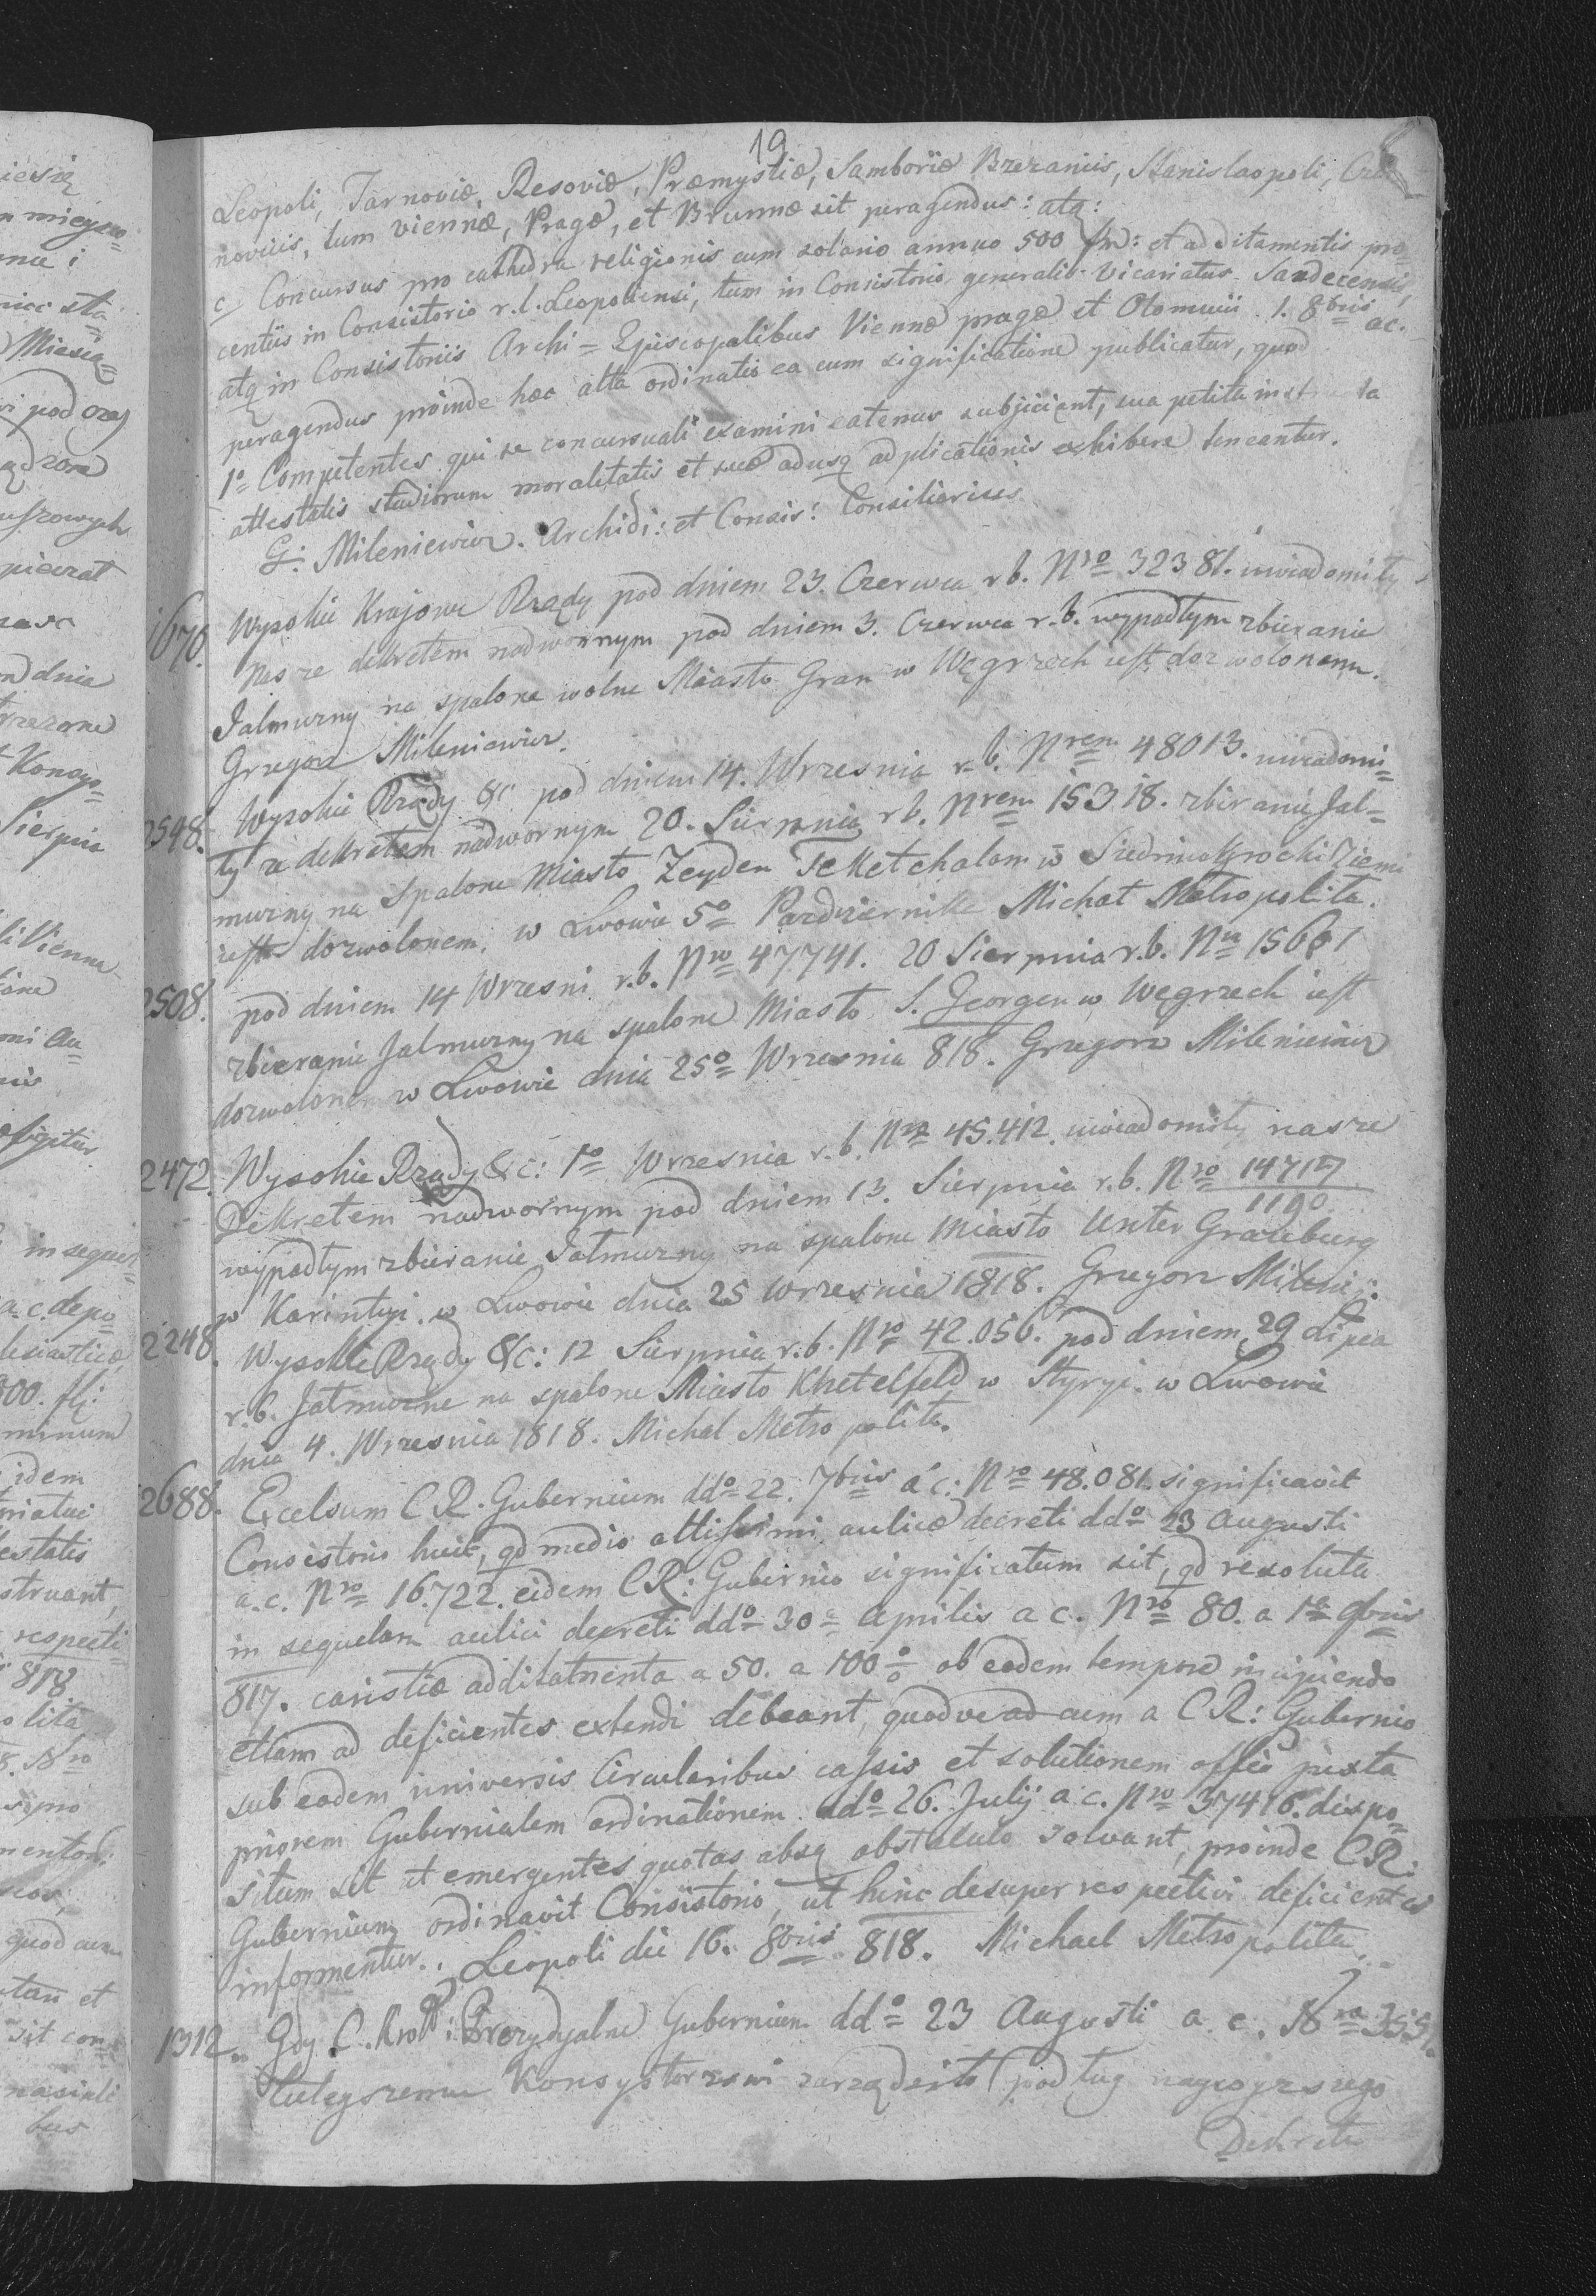 19
Leopoli, Tarnoviæ, Resoviæ, Præmysliæ, Samboriæ Brzezaniis, Stanislaopoli, Czer
noviciis, tum viennæ, Pragæ, et Brunnæ sit peragendus: atq:
c Concursus pro cathedra religionis cum solario annuo 500 fr: et additamentis pro-
centiis in Consistorio r. l. Leopoliensi, tum in Consistorio generalis Vicariatus Sandecensis,
atq in Consistoriis Archi=Episcopalibus Viennæ pragæ et Olomucii 1. 8bris ac.
peragendus proinde hæc alta ordinatio ea cum significatione publicatur, quod
1o Competentes qui se concursuali examini eatenus subjicient, sua petita instructa
attestatis studiorum moralitatis et suæ adusq adplicationis exhibere teneantur.
G: Mileniewicz. Archidi: et Consis: Consiliarius
1670. Wysokie Krajowe Rządy pod dniem 23. Czerwca r b. Nro 32381. uwiadomiły
nas ze dekretem nadwornym pod dniem 3. Czerwca r. b. wypadłym zbieranie
Jalmużny na spalone wolne Miasto Gran w Węgrzech jest dozwolonem.
Grzegorz Mileniewicz.
2548. Wysokie Rządy &c pod dniem 14. Wrzesnia r. b. Nrem 48013. uwiadomi=
ły ze dekretem nadwornym 20. Sierpnia r b. Nrem 15318. zbieranie Jal=
mużny na spalone Miasto Zeyden Feketehalom w Siedmiogrockiey Ziemi
jest dozwolonem. w Lwowie 5o Pazdziernika Michał Metropolita.
2508. pod dniem 14 Wrzesni r. b. Nro 47741. 20 Sierpnia r. b. Nro 15661
zbieranie Jalmużny na spalone Miasto S. Georgen w Węgrzech jest
dozwolonem w Lwowie dnia 25o Wrzesnia 818. Grzegorz Mileniewicz
2472. Wysokie Rządy &c: 1o Wrzesnia r. b. Nro 45.412. uwiadomiły nas ze
Dekretem nadwornym pod dniem 13. Sierpnia r. b. Nro 14717/1190
wypadłym zbieranie Jałmużny na spalone Miasto Unter Grazeburg
w Karintyi. w Lwowie dnia 25 Wrzesnia 1818. Grzegorz Mileni:
2248. Wysokie Rządy &c: 12 Sierpnia r. b. Nro 42.056. pod dniem 29 Lipca
r. b. Jałmużne na spalone Miasto Khetelfeld w Styryi. w Lwowie
dnia 4. Wrzesnia 1818. Michał Metropolita.
2688. Excelsum C R. Gubernium ddo 22. 7bris a c: Nro 48.081. significavit
Consistorio huic, qd medio altissimi aulicæ decreti ddo 23 Augusti
a. c. Nro 16.722. eidem C R: Gubernio significatum sit, qd resoluta
in sequelam aulici decreti ddo 30a Aprilis a c. Nro 80. a 1a 9bris
817. caristiæ additamenta a 50. a 100 % ab eodem tempore incipiendo
etiam ad deficientes extendi debeant, quodve ad cum a C R: Gubernio
sub eodem universis Circularibus cassis et solutionem offia juxta
priorem Gubernialem ordinationem ddo 26. Julij a. c. Nro 37416. dispo=
situm sit et emergentes quotas absq obstaculo solvant, proinde C R:
Gubernium ordinavit Consistorio, ut hinc desuper respectivi deficientes
informentur. Leopoli die 16. 8bris 818. Michael Metropolita
1312. Gdy C. Krol: Prezydyalne Gubernium ddo 23 Augusti a. c. Nro
tuteyszemu Konsystorzowi zarządziło podług naywyzszego
Dekretu